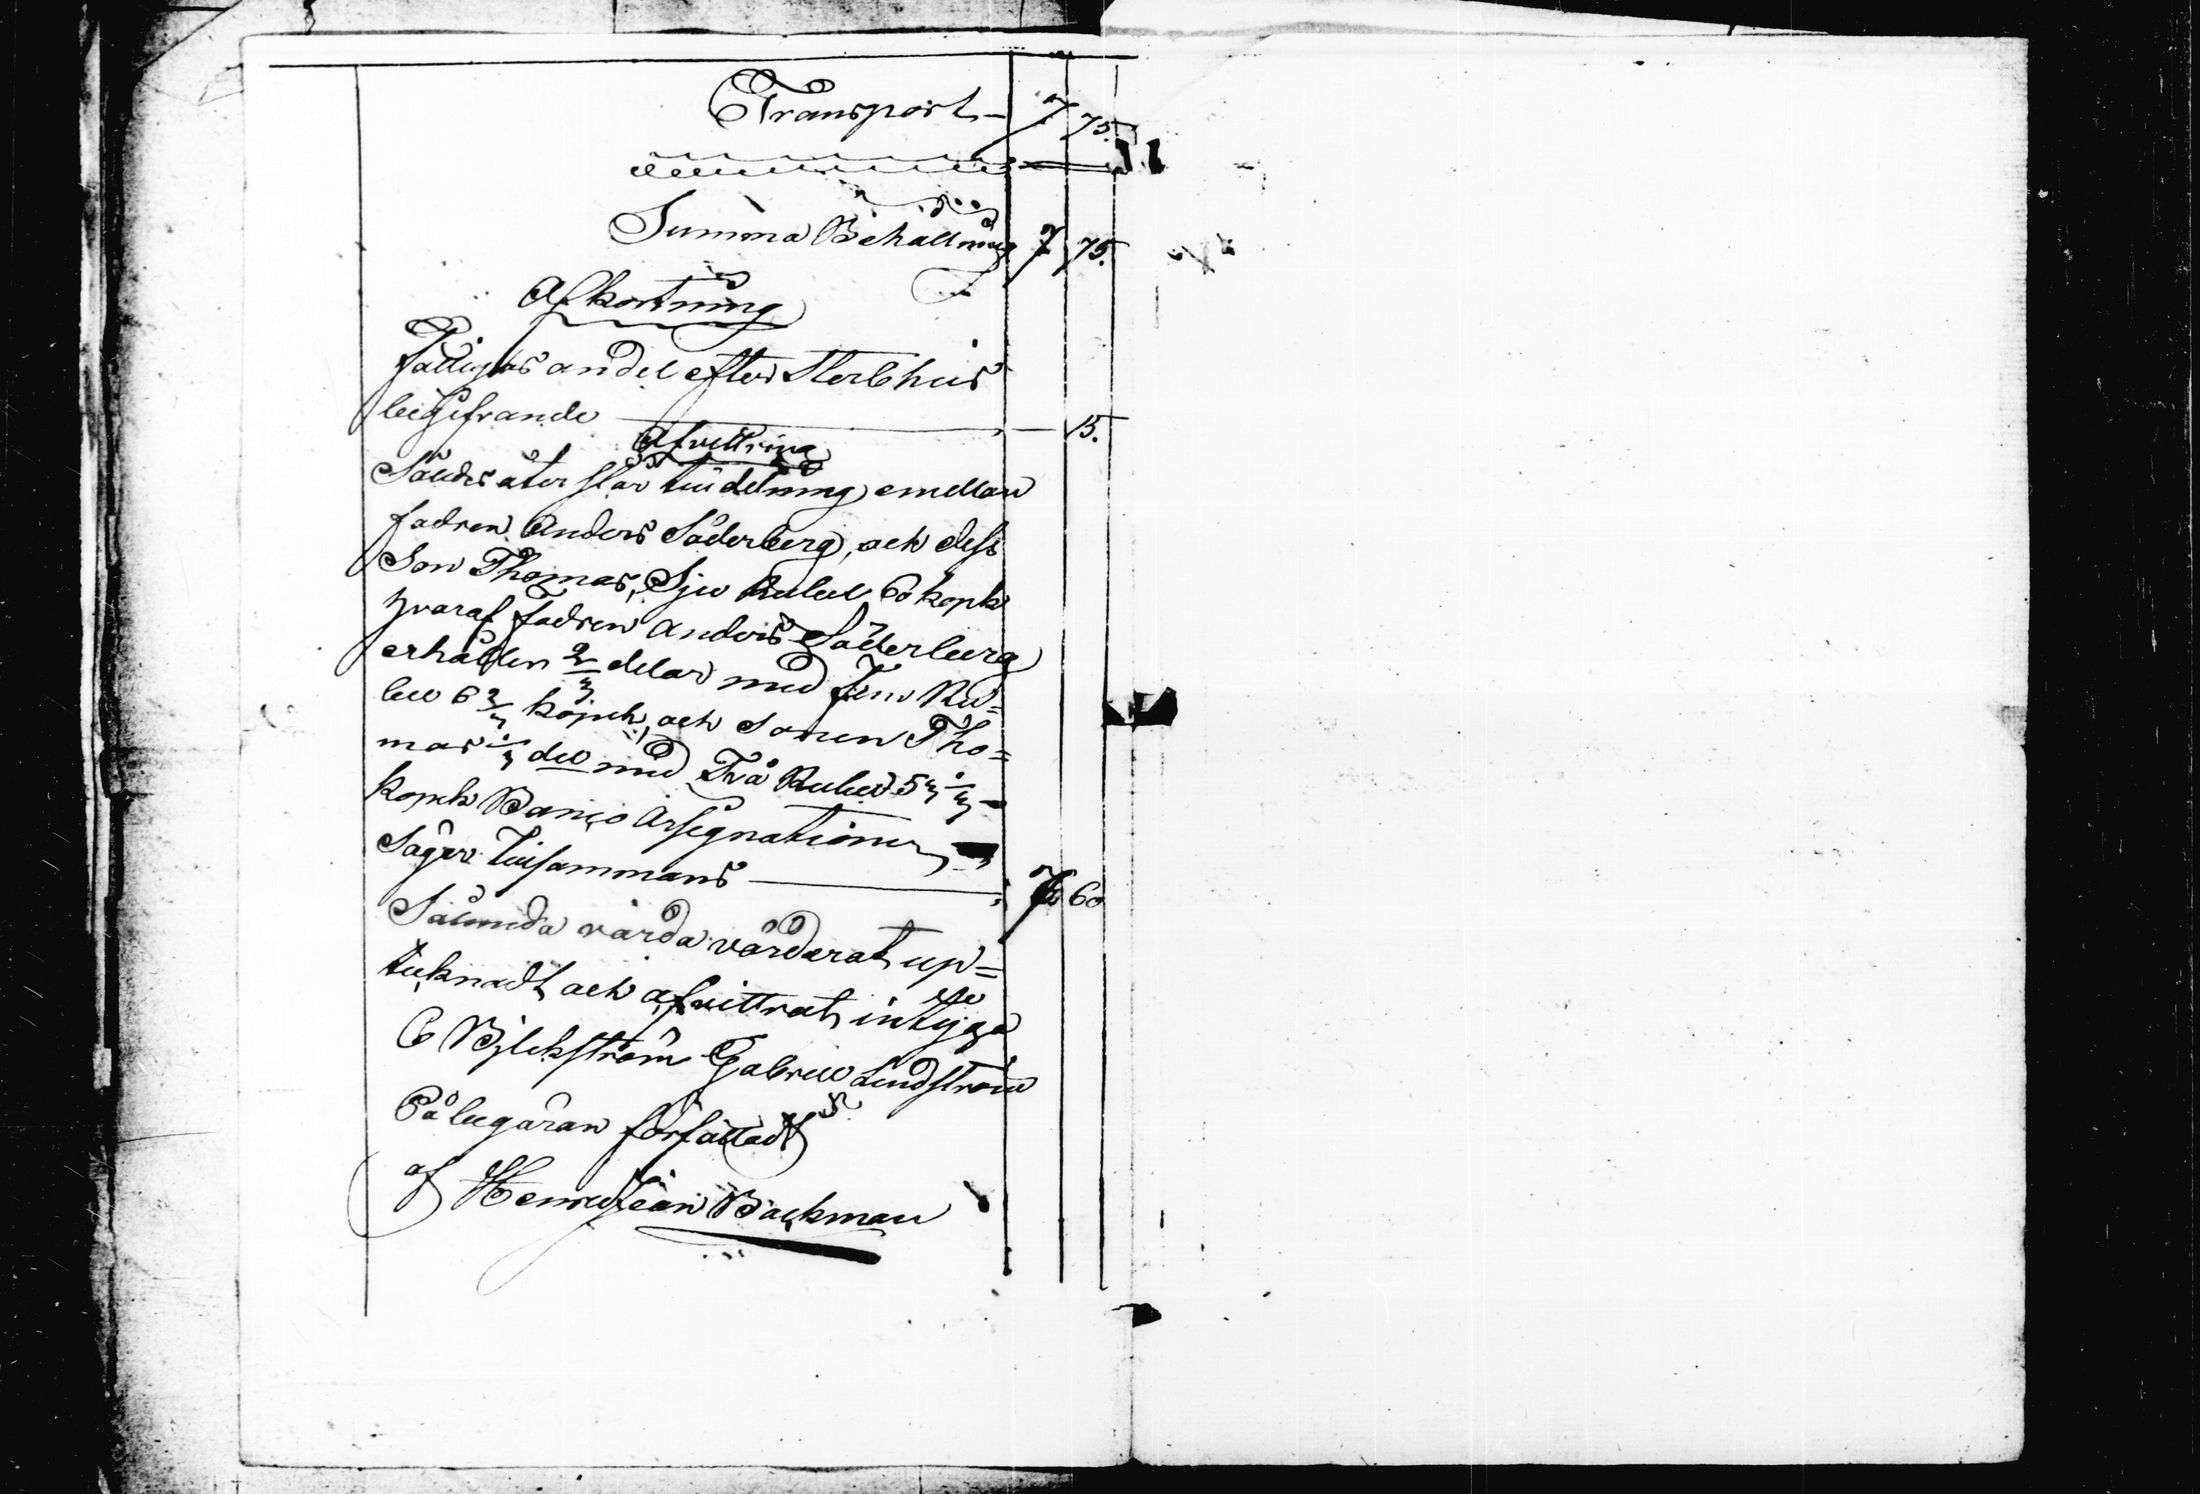 Transport 7 75.
Summa Behållning 7 75.
Afkortning
Fattigas andel efter Sterbhus
bægifvande 15.
Afvittring
Således återstår till delning emellan
fadren Anders Söderberg, och dess
Son Thomas, Sju Rubel 60 kopk
hvaraf Fadren Anders Söderberg
erhåller 2/3 delar med Fem Ru=
bel 6 2/3 kopek, och Sonen Tho=
mas 1/3 del med Två Rubel 53 1/3
kopek Banco Assignationer
Säger Tillsammans 7 60
Sålunda vårda värderat up=
tecknadt och afvittrat intyga
C Björkström Gabriel Lindström
På begäran författadt
af Henric Jean Backman